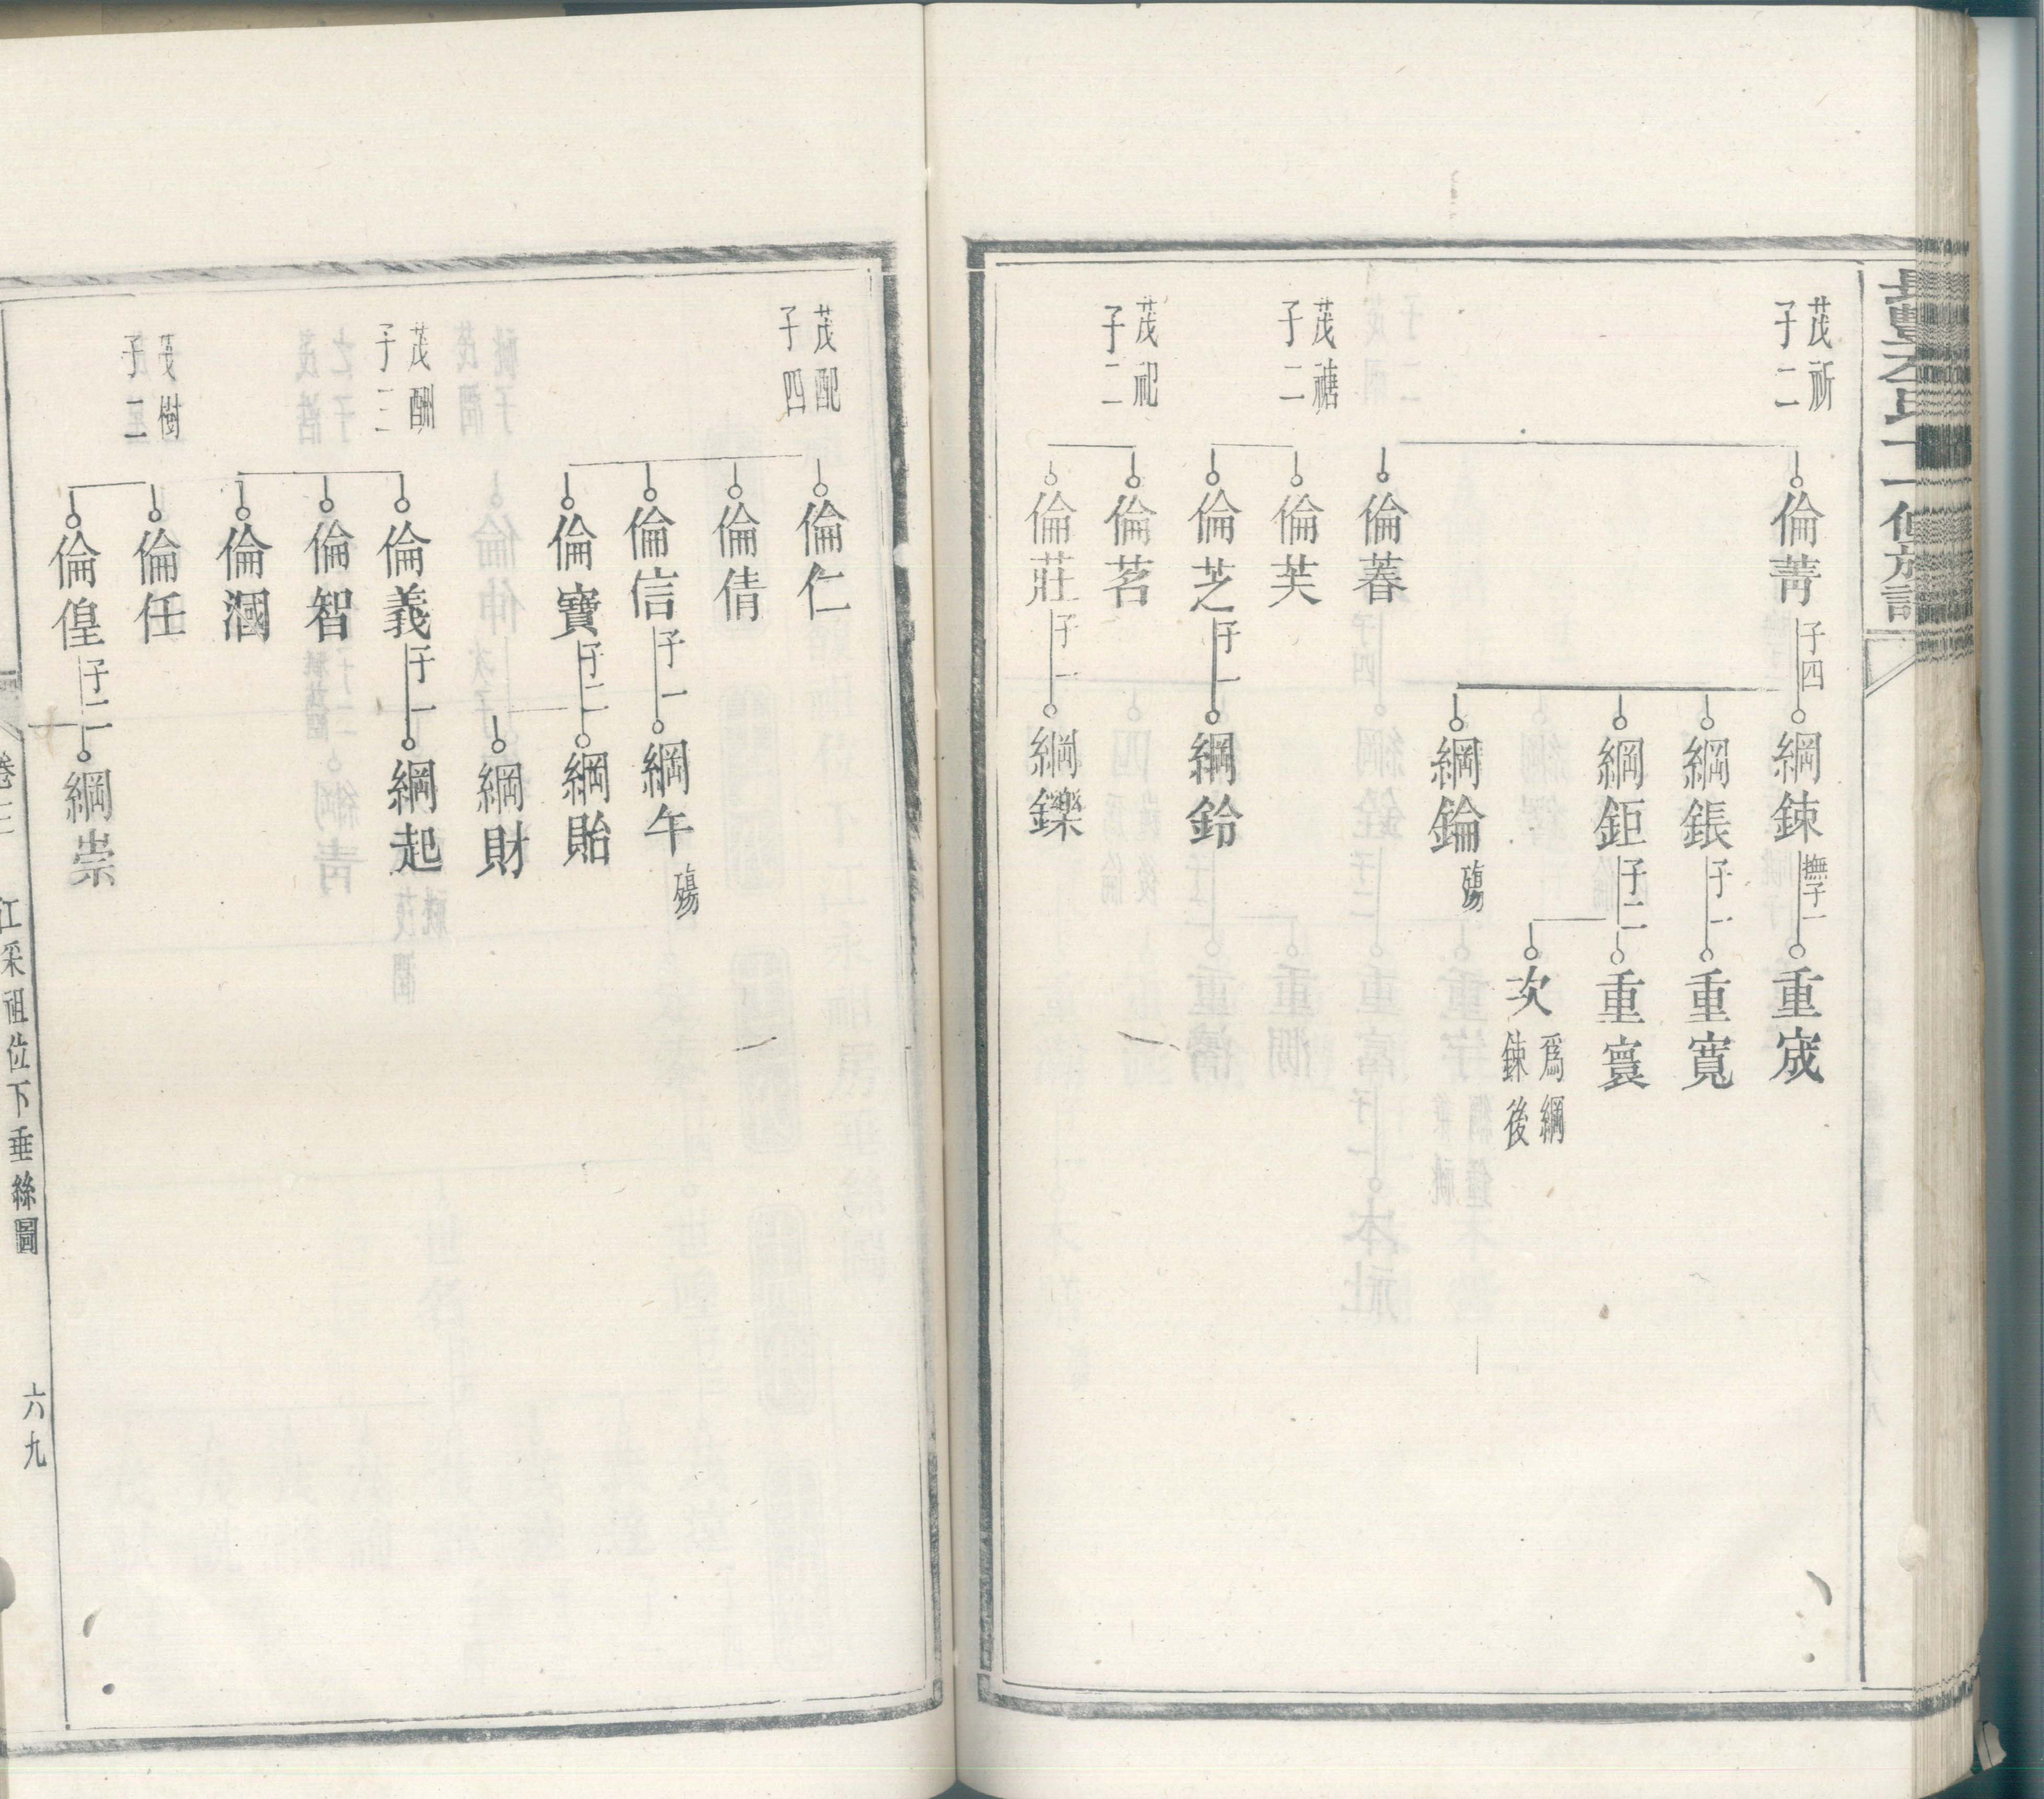 茂祈
子二
倫菁
子四
綱鋉
撫子一
重宬
綱鋹
子一
重寬
綱鉅
子二
重寰
次
為綱
鋉後
綱錀
殤
倫萶
茂禟
子二
倫芙
倫芝
子一
綱鈴
茂祀
子二
倫茗
倫莊
子一
綱鑠
茂配
子四
倫仁
倫倩
倫信
子一
綱午
殤
倫寶
子二
綱貽
綱財
茂酬
子三
倫義
子一
綱起
倫智
倫漍
茂樹
子二
倫任
倫偟
子二
綱崇
江采祖位下垂絲圖
六九